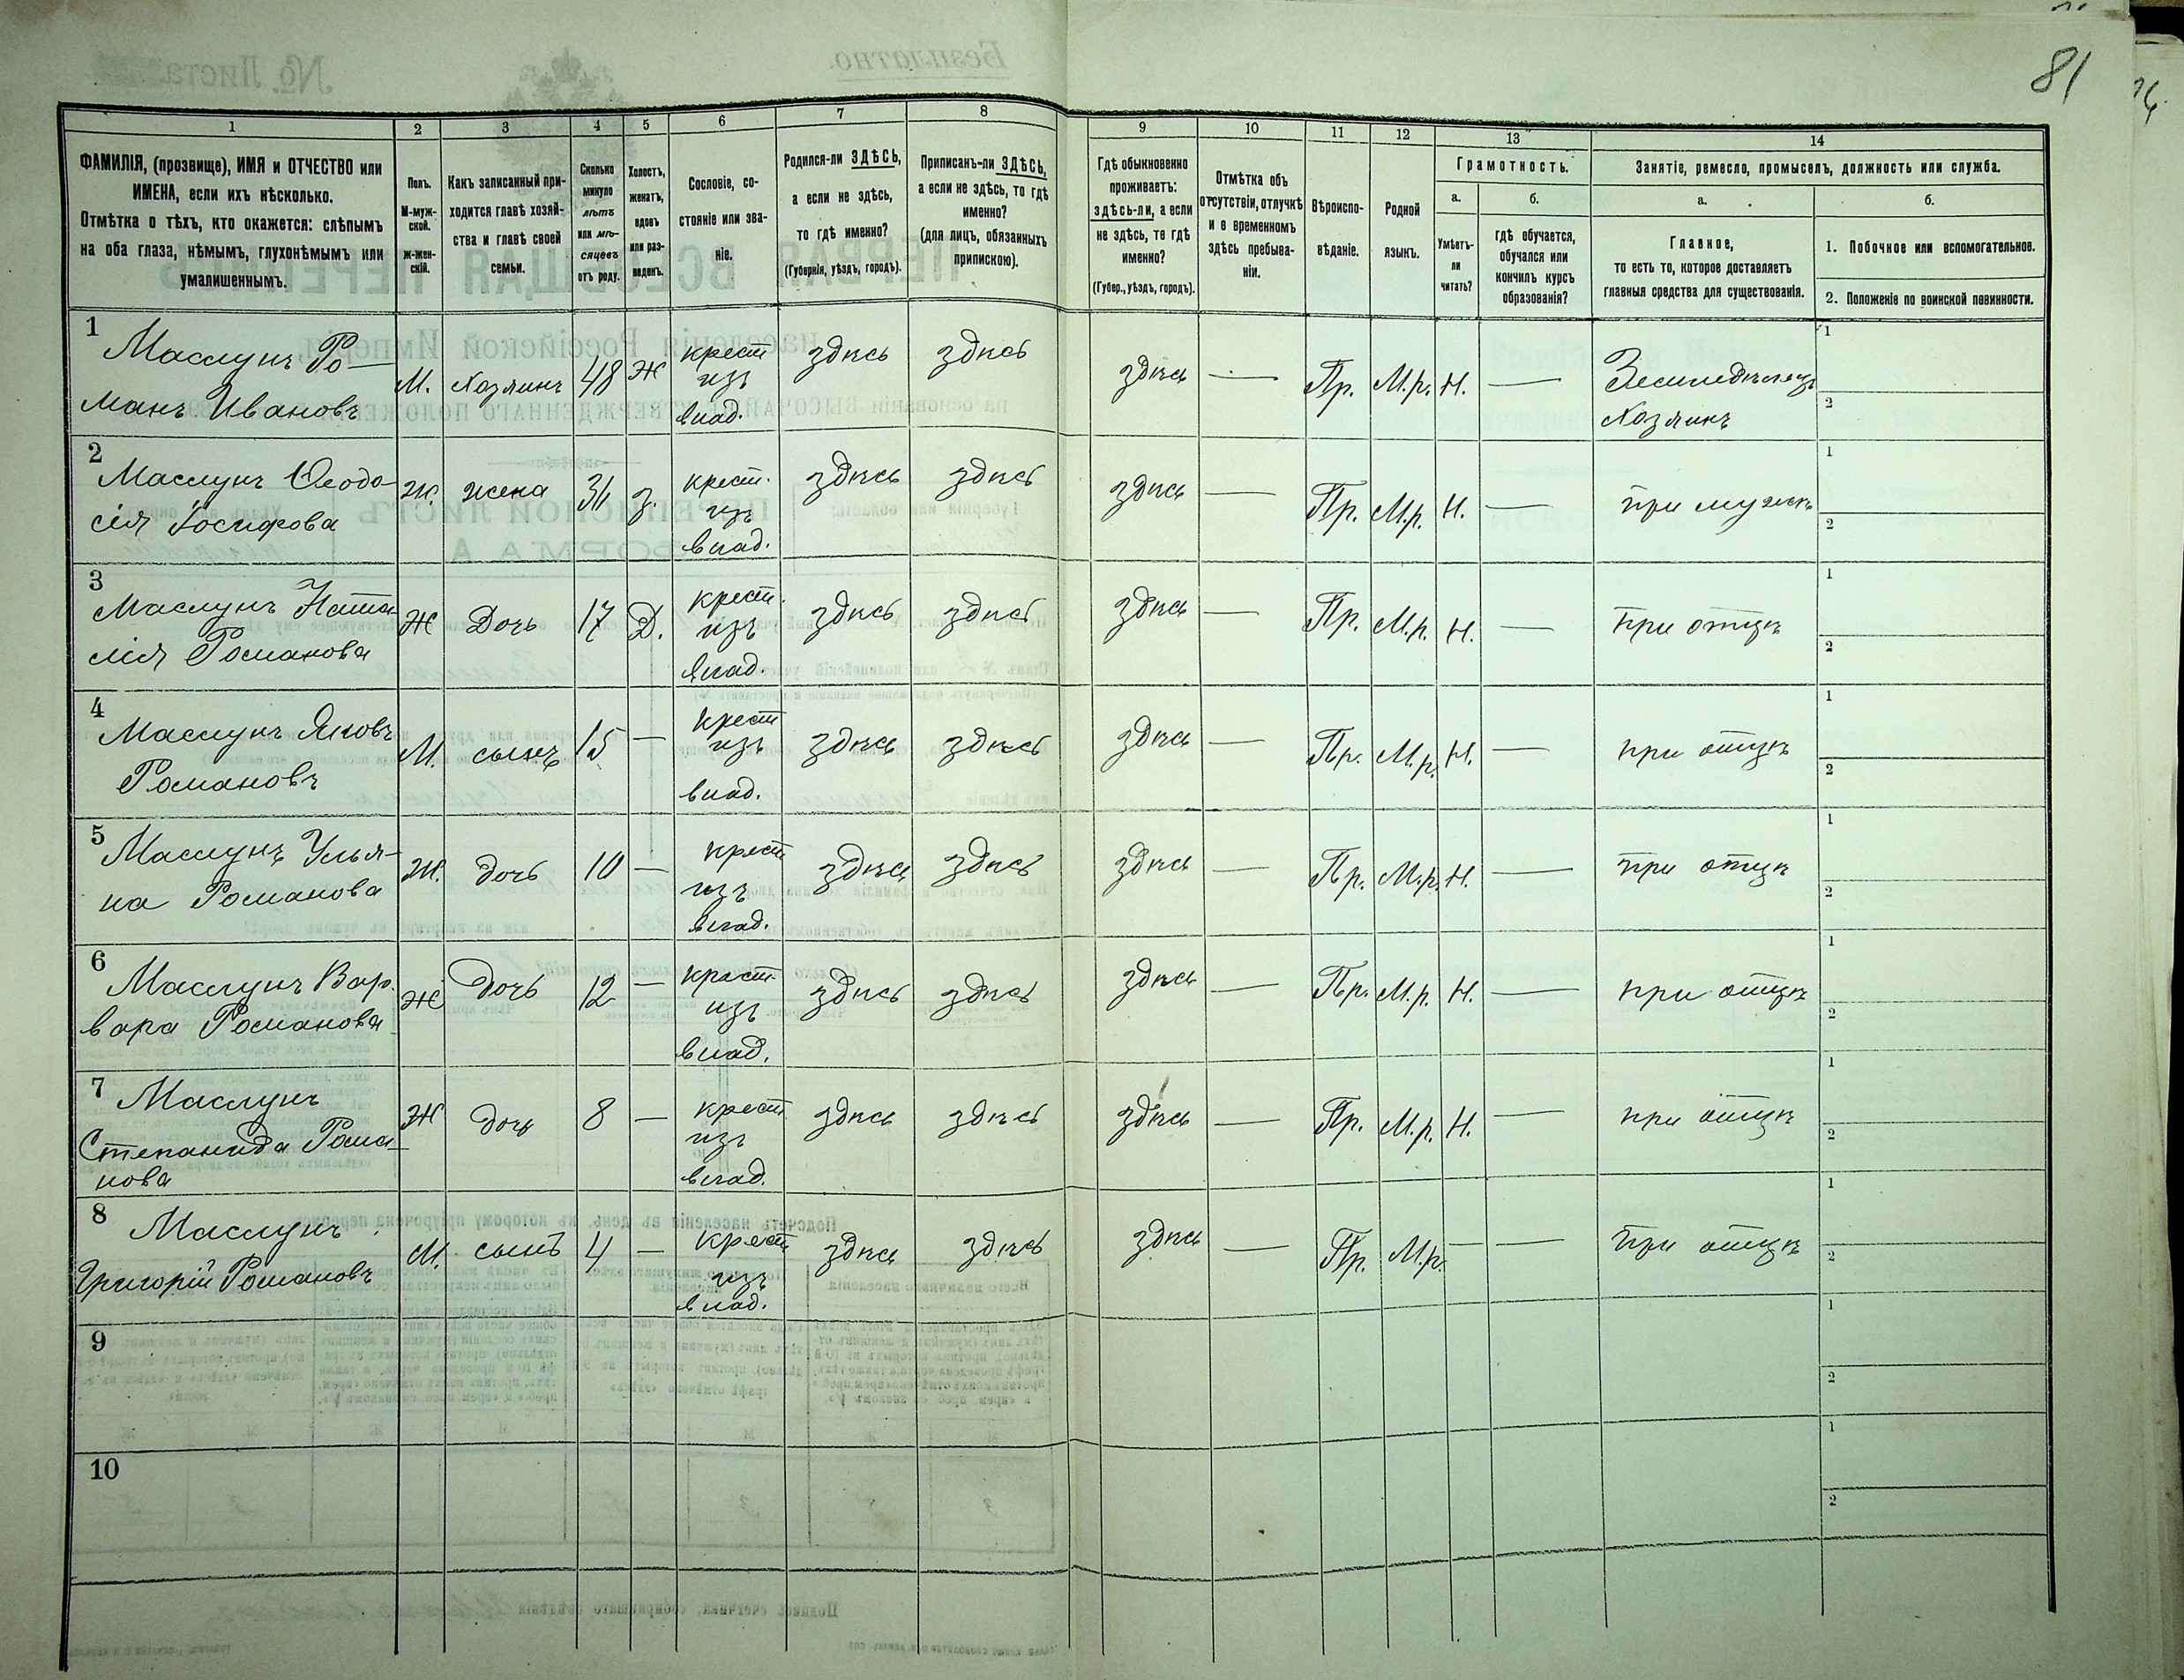 81
1 2 3 4 5 6 7 8 9 10 11 12 13 14
ФАМИЛІЯ, (прозвище), ИМЯ и ОТЧЕСТВО или ИМЕНА, если ихъ нѣсколько.
Отмѣтка о тѣхъ, кто окажется: слѣпымъ на оба глаза, нѣмымъ, глухонѣмымъ или умалишеннымъ.
Полъ. М-мужской. ж-женскій.
Какъ записанный приходится главѣ хозяйства и главѣ своей семьи.
Сколько минуло лѣтъ или мѣсяцевъ отъ роду.
Холостъ, женатъ, вдовъ или разведенъ.
Сословіе, состояніе или званіе.
Родился-ли ЗДѢСЬ, а если не здѣсь, то гдѣ именно? (Губернія, уѣздъ, городъ).
Приписанъ-ли ЗДѢСЬ, а если не здѣсь, то гдѣ именно? (для лицъ, обязанныхъ припискою).
Гдѣ обыкновенно проживаетъ: здѣсь-ли, а если не здѣсь, то гдѣ именно? (Губер., уѣздъ, городъ).
Отмѣтка объ отсутствіи, отлучкѣ и о временномъ здѣсь пребываніи.
Вѣроисповѣданіе.
Родной языкъ.
Грамотность.
а. Умѣетъ-ли читать?
б. гдѣ обучается, обучался или кончилъ курсъ образованія?
Занятіе, ремесло, промыселъ, должность или служба.
а. Главное, то есть то, которое доставляетъ главныя средства для существованія.
б.
1. Побочное или вспомогательное.
2. Положеніе по воинской повинности.
1 Маслунъ Романъ Ивановъ М. Хозяинъ 48 Ж крест изъ влад. здѣсь здѣсь здѣсь — Пр. М.р. Н. — Земледѣлецъ Хозяинъ 1 2
2 Маслунъ Ѳеодосія Іосифова Ж. жена 31 з. крест. изъ влад. здѣсь здѣсь здѣсь — Пр. М.р. Н. — при мужѣ 1 2
3 Маслунъ Наталія Романова Ж Дочь 17 Д. крест. изъ влад. здѣсь здѣсь здѣсь — Пр. М.р. Н. — при отцѣ 1 2
4 Маслунъ Яковъ Романовъ М. сынъ 15 — крест изъ влад. здѣсь здѣсь здѣсь — Пр. М.р. Н. — при отцѣ 1 2
5 Маслунъ Ульяна Романова Ж. дочь 10 — крест изъ влад. здѣсь здѣсь здѣсь — Пр. М.р. Н. — при отцѣ 1 2
6 Маслунъ Варвара Романова Ж Дочь 12 — крест. изъ влад. здѣсь здѣсь здѣсь — Пр. М.р. Н. — при отцѣ 1 2
7 Маслунъ Степанида Романова Ж дочь 8 — крест изъ влад. здѣсь здѣсь здѣсь — Пр. М.р. Н. — при отцѣ 1 2
8 Маслунъ Григорій Романовъ М. сынъ 4 — крест изъ влад. здѣсь здѣсь здѣсь — Пр. М.р. — — при отцѣ 1 2
9 1 2
10 1 2